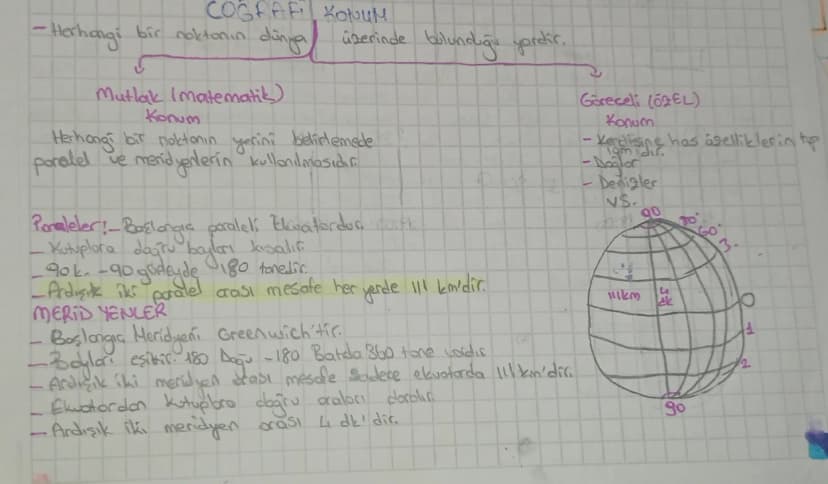 COĞRAFİ KONUM
- Herhangi bir noktanın dünya üzerinde bulunduğu yerdir.
Mutlak (matematik)
Konum
Herhangi bir noktanın yerini belirlemede
paralel ve meridyenlerin kullanılmasıdır
Göreceli (ÖZEL)
Konum
- Kendisine has özelliklerin
- Dağlar
- Denizler
VS.
Paraleler:- Başlangıç paraleli Ekvatordur
- Kutuplara doğru boyları kısalır
- 90k. - 90 güneyde 180 tanedir.
- Ardışık iki paralel arası mesafe her yerde 111 km'dir.
MERİDYENLER
- Başlangıç Meridyeni Greenwich'tir.
- Boyları eşittir. 180 Doğu - 180 Batıda 360 tane vardır
- Ardışık iki meridyen arası mesafe sadece ekvatorda 111 km'dir.
- Ekvatordan kutuplara doğru araları daralır
- Ardışık iki meridyen arası 4 dk'dir.
90
60
3
111km
4
dk
0
1
2
90